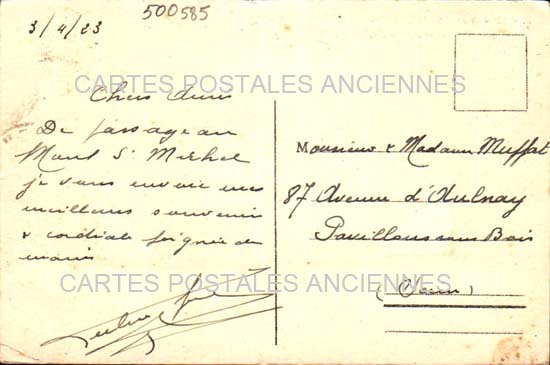 500585
3/4/23
CARTES POSTALES ANCIENNES
Chers Amis
De passage au
Mont St Michel
je vous envoie mes
meilleurs souvenirs
& cordiale poignée de
mains
Monsieur & Madame Muffat
87 Avenue d'Aulnay
Pavillons sous Bois
(Seine)
CARTES POSTALES ANCIENNES